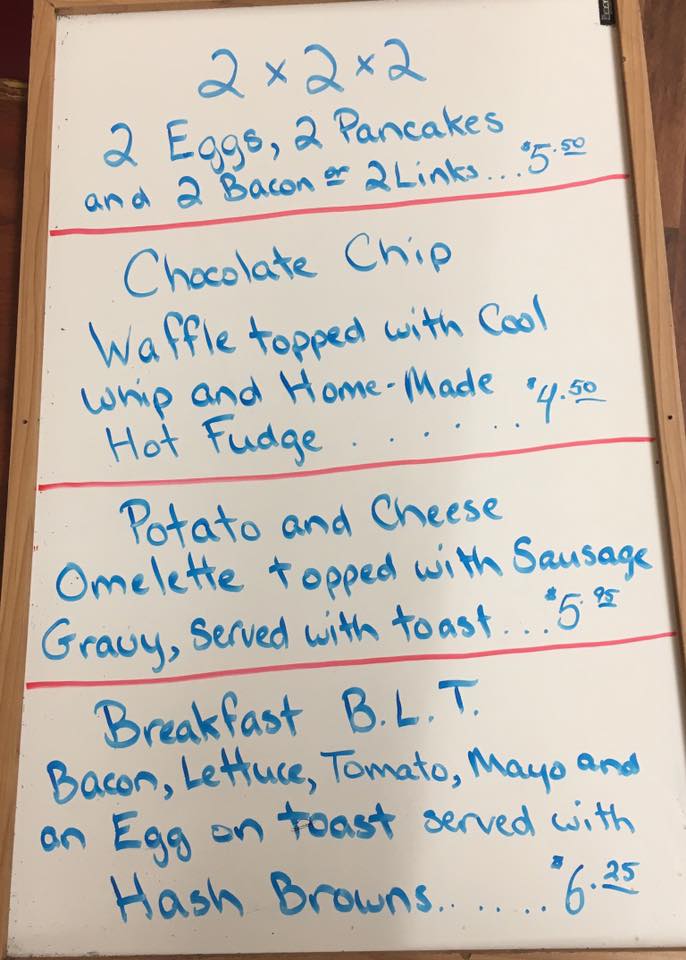 2 x 2 x 2
2 Eggs, 2 Pancakes
and 2 Bacon or 2 Links... $5.50
Chocolate Chip
Waffle topped with Cool
Whip and Home-Made
Hot Fudge ....... $4.50
Potato and Cheese
Omelette topped with Sausage
Gravy, served with toast... $5.95
Breakfast B.L.T.
Bacon, Lettuce, Tomato, Mayo and
an Egg on toast served with
Hash Browns....... $6.25